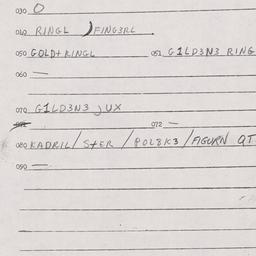 030 O
040 RINGL )FING3RL
050 GOLD+RINGL 051 G1LD3N3 RING
060 —
070 G1LD3N3 JUX
072 —
080 KADRIL/ST+ER/POL8K3/FIGURN QT
090 —